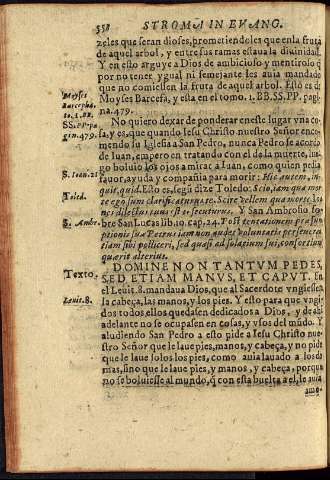 358 STROMA IN EVANG.
zeles que seran dioses, prometiendoles que en la fruta
de aquel arbol, y entre sus ramas estaua la diuinidad.
Y en esto arguye a Dios de ambicioso y mentiroso q̃
por no tener ygual ni semejante les auia mandado
que no comiessen la fruta de aquel arbol. Esto es di
Moyses Barcefa, y esta en el tomo. 1. BB. SS. PP. pagi-
na. 479.
Moyses
Barcepha
to. 1. BB.
SS. PP. pa
gin. 479.
No quiero dexar de ponderar en este lugar vna co
sa, y es, que quando Iesu Christo nuestro Señor enco-
mendo su Iglesia a San Pedro, nunca Pedro se acordo
de Iuan, empero en tratando con el de la muerte, lue-
go boluio los ojos a mirar a Iuan, como quien pedia
fauor, ayuda y compañia para morir: Hic autem, in-
quit, quid. Esto es, segũ dize Toledo: Scio, iam qua mor
te ego sum clarificaturus te. Scire vellem qua morte, hic
nes dilectus tuus est te secuturus. Y San Ambrosio so-
bre San Lucas lib. 10. cap. 24. Post tentationem præsum
ptionis sua Petrus iam non audet voluntaria persecutio
etiam sibi polliceri, sed quasi ad solatium sui, consortium
quærit alterius.
S. Ioan. 21
Toled.
S. Ambr.
DOMINE NON TANTVM PEDES,
SED ETIAM MANVS, ET CAPVT. En
el Leuit. 8. mandaua Dios, que al Sacerdote vngiessen
la cabeça, las manos, y los pies. Y esto para que vngi
dos todos ellos quedasen dedicados a Dios, y de ahi
adelante no se ocupasen en cosas, y vsos del mũdo. Y
aludiendo San Pedro a esto pide a Iesu Christo nue-
stro Señor que le laue pies, manos, y cabeça, y no pide
que le laue solo los pies, como auia lauado a los de
mas, sino que le laue pies, y manos, y cabeça, porque
no se boluiesse al mundo, q̃ con esta buelta a el, le auia
Texto.
Leuit. 8.
ame-